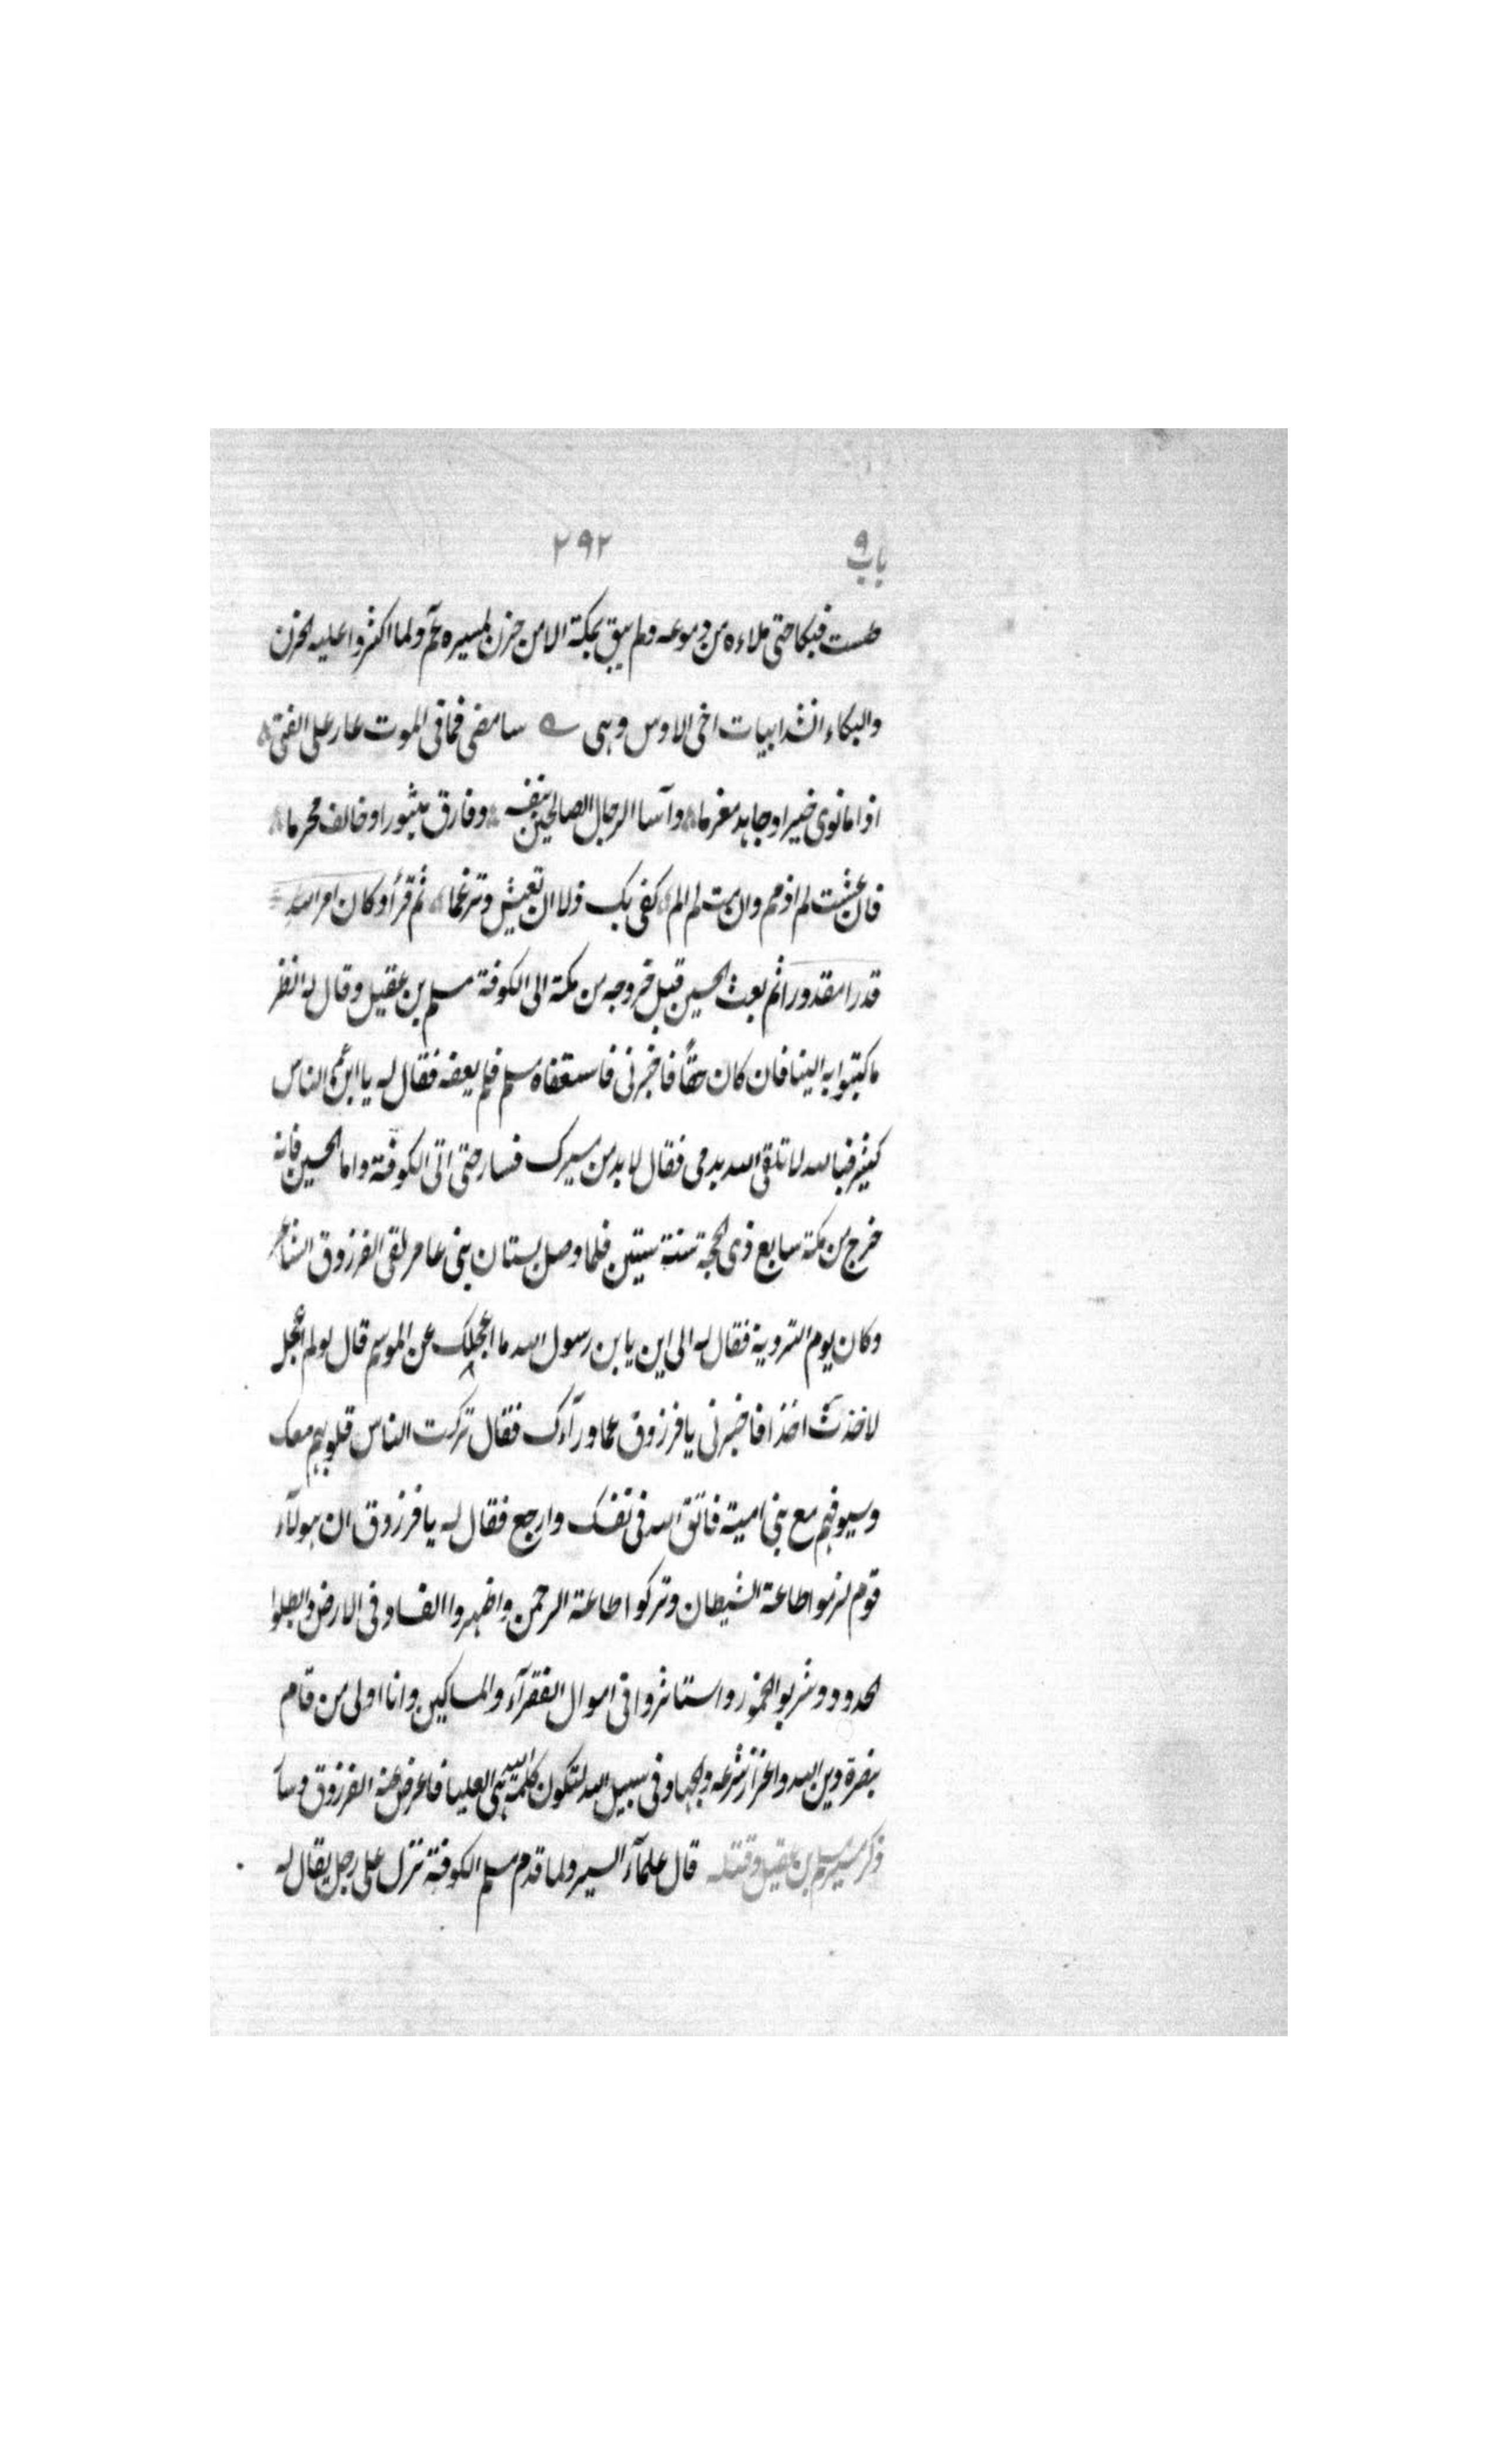 باب ٩ ٢٩٢
طست فبكا حتى ملاءه من دموعه ولم يبق بمكة الا من حزن لمسيره ثم ولما اكثروا عليه الحزن
والبكاء انشد ابيات اخى الاوس وهى سامضى فما فى الموت عار على الفتى
اذا ما نوى خيرا وجاهد مغرما وآسا الرجال الصالحين بنفسه وفارق مثبورا وخالف محرما
فان عشت لم اذمم وان مت لم الم كفى بك ذلا ان تعيش وترغما ثم قرأ وكان امر الله
قدرا مقدورا ثم بعث الحسين قبل خروجه من مكة الى الكوفة مسلم بن عقيل وقال له انظر
ما كتبوا به الينا فان كان حقّا فاخبرنى فاستعفاه مسلم فلم يعفه فقال له يا ابن عم الناس
كثير فبالله لا تلقى الله بدمى فقال لا بد من مسيرك فسار حتى اتى الكوفة واما الحسين فانه
خرج من مكة سابع ذى الحجة سنة ستين فلما وصل بستان بنى عامر لقى الفرزدق الشاعر
وكان يوم التروية فقال له الى اين يا بن رسول الله ما اعجلك عن الموسم قال لو لم اعجل
لاخذت اخذا فاخبرنى يا فرزدق عما ورآءك فقال تركت الناس قلوبهم معك
وسيوفهم مع بنى امية فاتق الله فى نفسك وارجع فقال له يا فرزدق ان هولآء
قوم لزموا طاعة الشيطان وتركوا طاعة الرحمن واظهروا الفساد فى الارض وابطلوا
الحدود وشربوا الخمور واستاثروا فى اموال الفقرآء والمساكين وانا اولى من قام
بنصرة دين الله واعزاز شرعه والجهاد فى سبيل الله لتكون كلمة الله هى العليا فاعرض عنه الفرزدق وسا
ذكر مسير مسلم بن عقيل وقتله قال علمآء السير ولما قدم مسلم الكوفة نزل على رجل يقال له